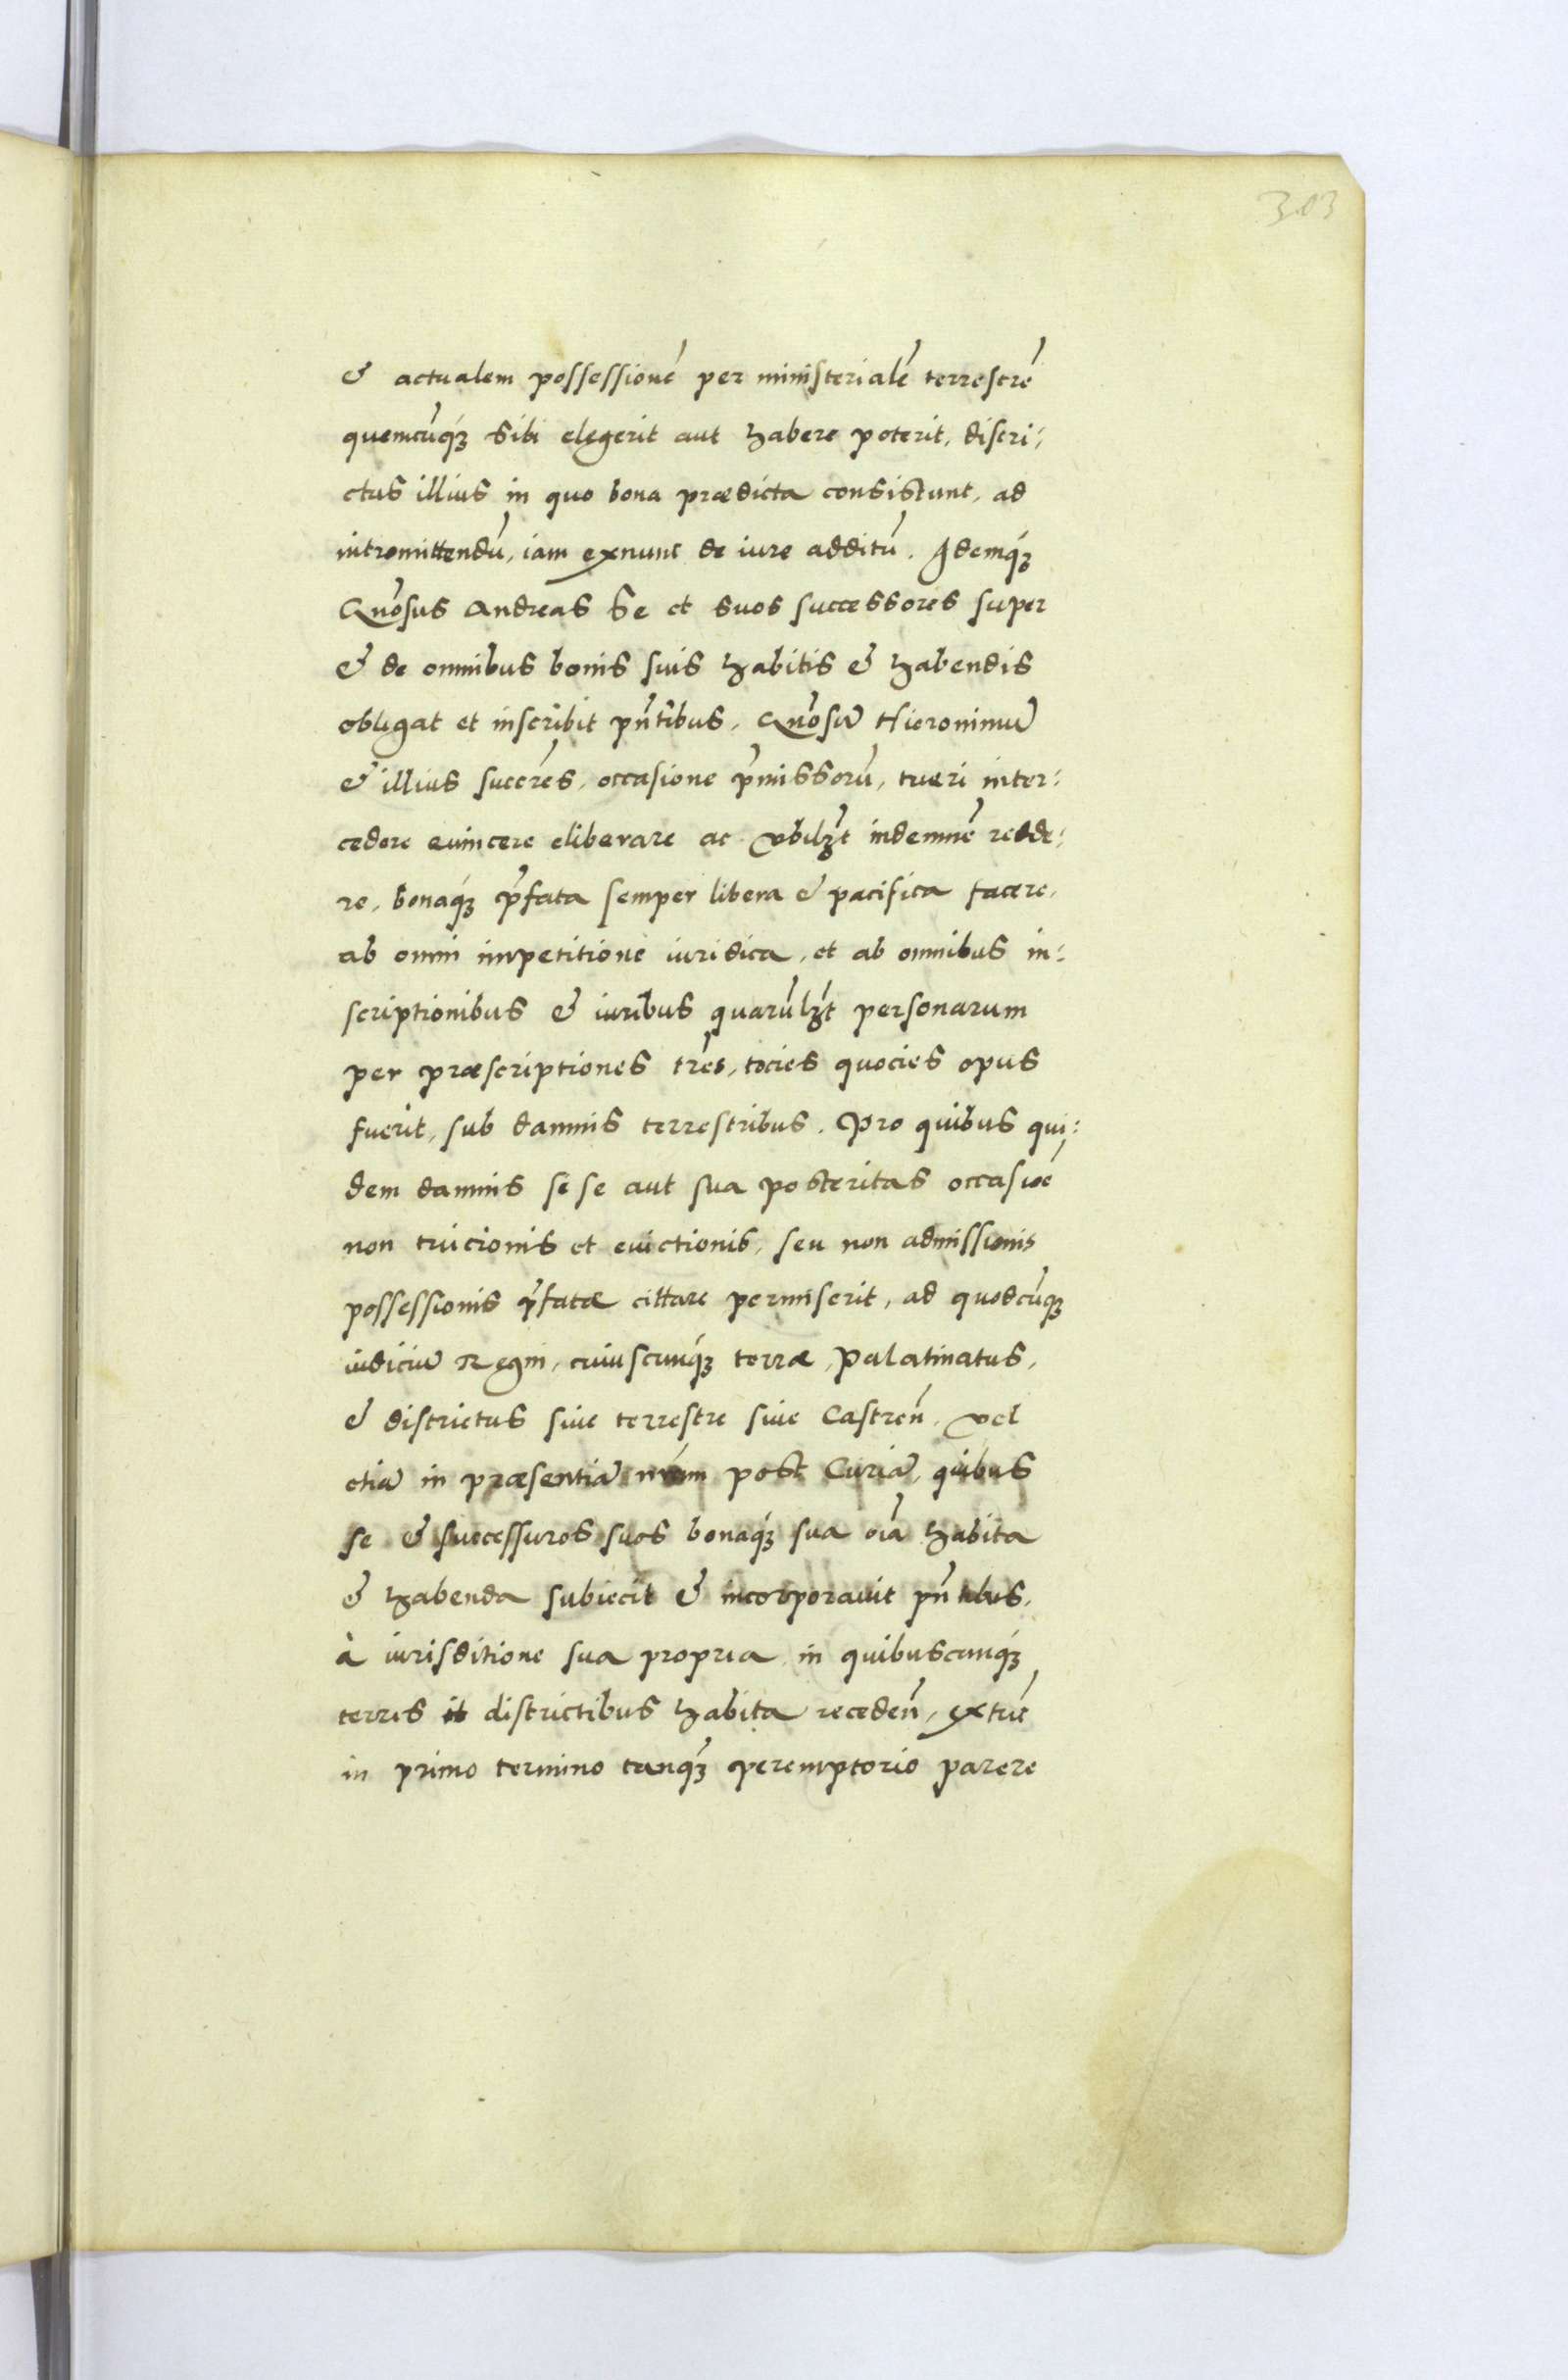 303
& actualem possessionē per ministerialē terrestrē
quemcūq́ꝫ sibi elegerit aut habere poterit, distri:
ctus illius in quo bona prædicta consistunt, ad
intromittendū, iam exnunc de iure additū. Idemq́ꝫ
Gn̄osus Andreas se et suos successores super
& de omnibus bonis suis habitis & habendis
obligat et inscribit pn̄tibus, Gn̄osū Hieronimū
& illius succr̄es, occasione p̄missorū, tueri inter:
cedere euincere eliberare ac vbilꝫt indemnē redde:
re, bonaq́ꝫ p̄fata semper libera & pacifica facere,
ab omni impetitione iuridica, et ab omnibus in:
scriptionibus & iuribus quarūlꝫt personarum
per præscriptiones tr̄es, tocies quocies opus
fuerit, sub damnis terrestribus. Pro quibus qui:
dem damnis si se aut sua posteritas occasiōe
non tuicionis et euictionis, seu non admissionis
possessionis p̄fatæ cittare permiserit, ad quodcūqꝫ
iudiciū Regni, cuiuscunq́ꝫ terræ, Palatinatus,
& districtus siue terrestre siue Castren̄, vel
etiā in præsentiā nr̄am post Curiā, quibus
se & successuros suos bonaq́ꝫ sua oīa habita
& habenda subiecit & incorporauit pn̄tibus,
à iurisditione sua propria in quibuscunq́ꝫ
terris et districtibus habita receden̄, extūc
in primo termino tanqꝫ peremptorio parere